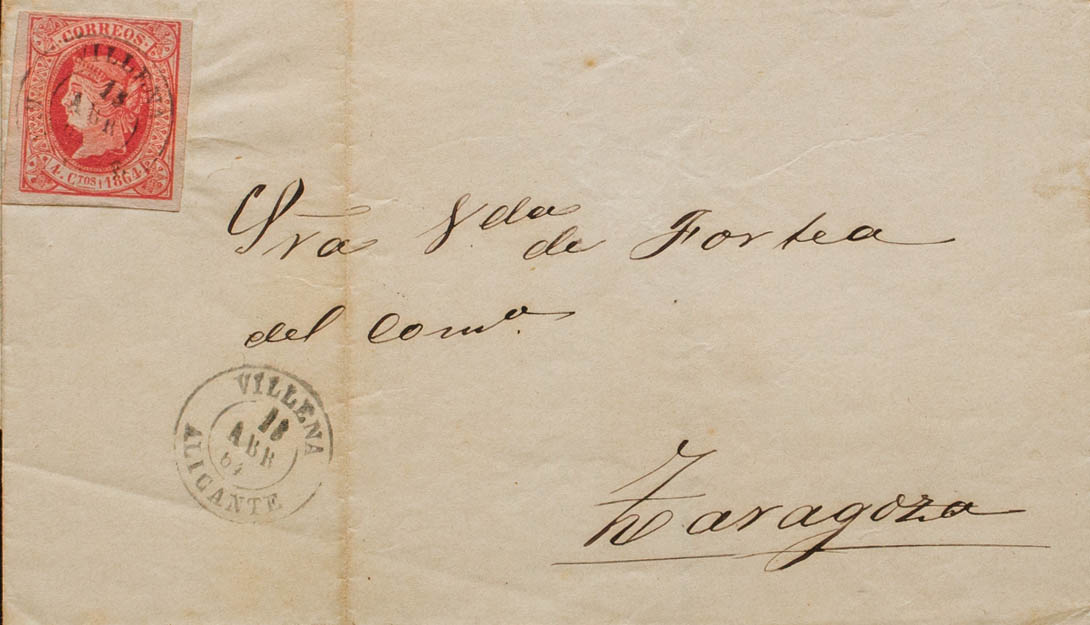 CORREOS
4. CTOS 1864
VILLENA
18
ABR
Sra Vda de Fortea
del Comº
VILLENA
18
ABR
64
ALICANTE
Zaragoza